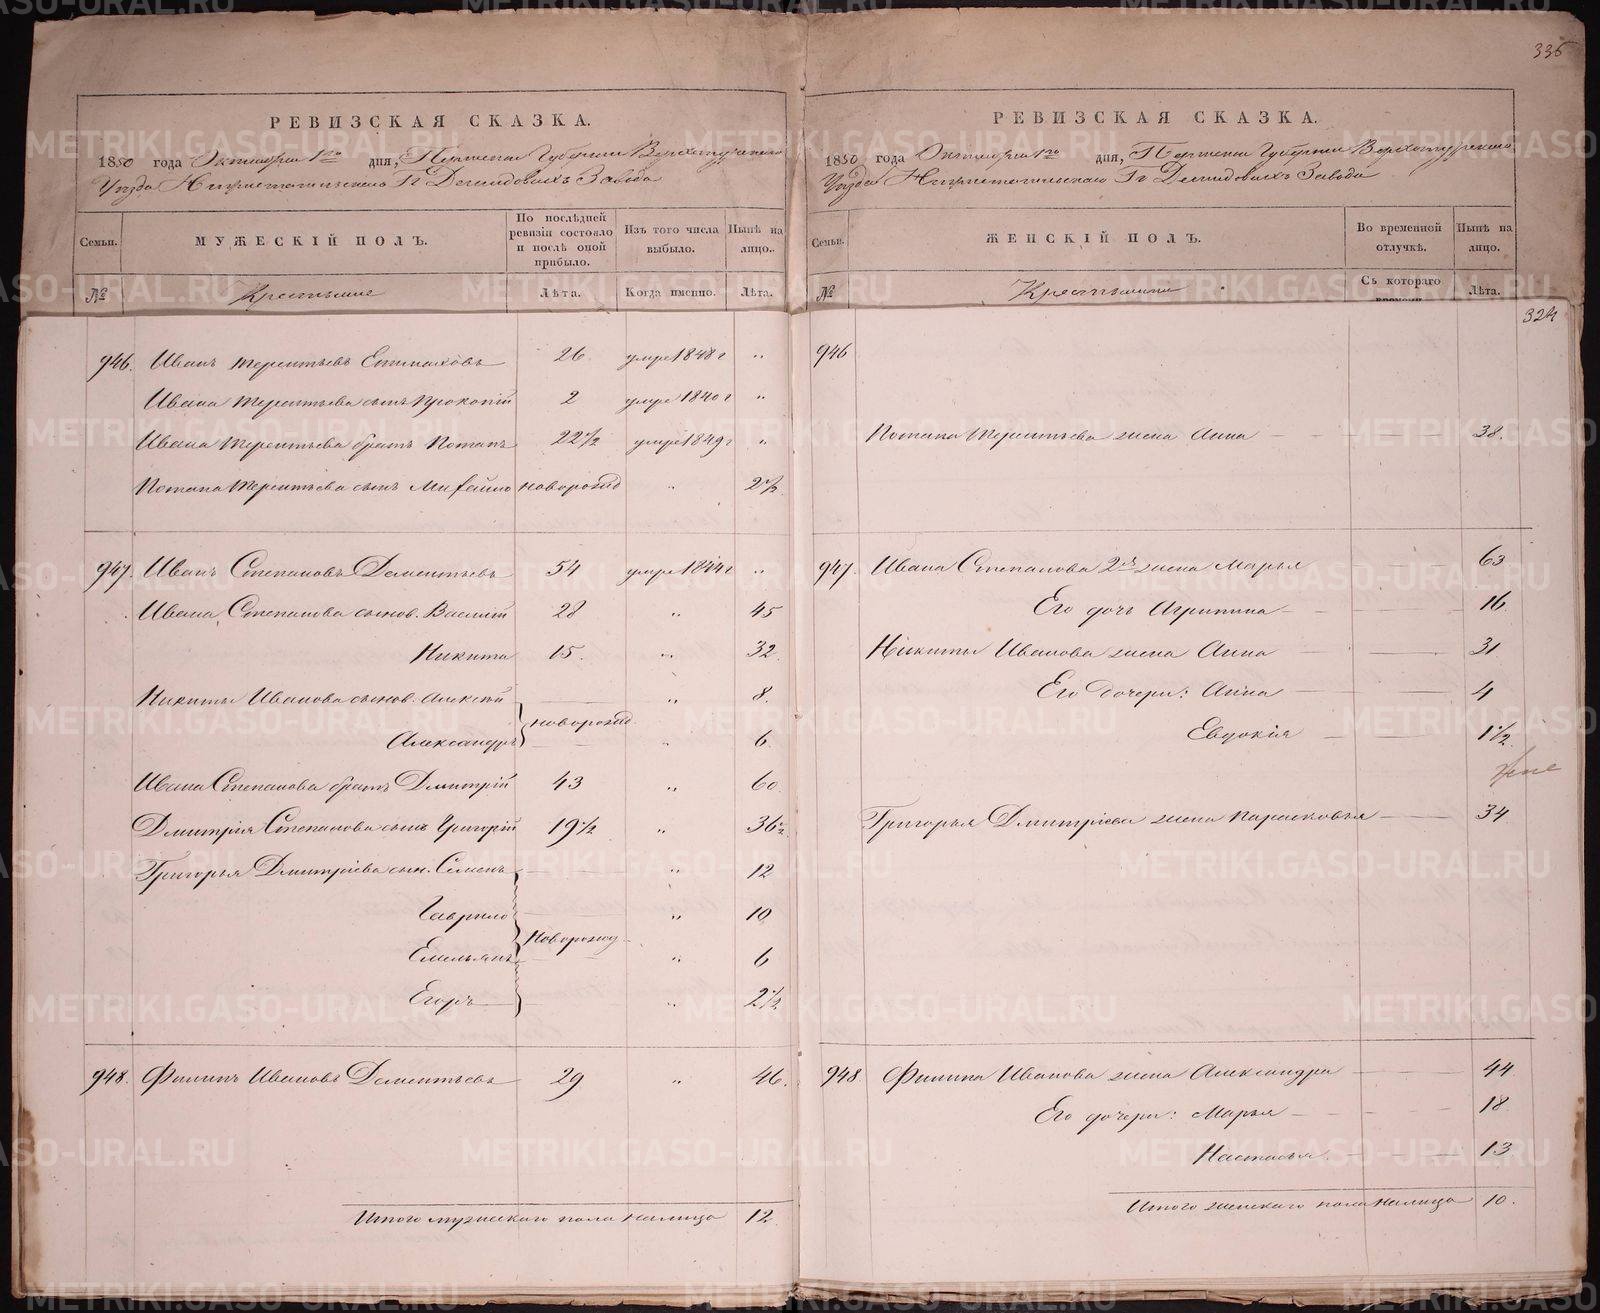 335
РЕВИЗСКАЯ СКАЗКА.
1850 года Октября 1го дня, Пермской Губернии Верхотурскаго
Уезда Нижнетагильскаго Гг Демидовыхъ Завода
Семьи.
МУЖЕСКІЙ ПОЛЪ.
По послѣдней ревизіи состояло и послѣ оной прибыло.
Изъ того числа выбыло.
Нынѣ на лицо.
№
Крестьяне
Лѣта.
Когда именно.
Лѣта.
946. Иванъ Терентьевъ 26. умре 1848 г "
Ивана Терентьева сынъ Прокопій 2 умре 1840 г "
Ивана Терентьева братъ Потапъ 22 1/2 умре 1849 г "
Потапа Терентьева сынъ Михайло новорожд " 2 1/2
947. Иванъ Степановъ Дементьевъ 54 умре 1844 г "
Ивана Степанова сынов. Василій 28 " 45
Никита 15. " 32
Никиты Иванова сынов. Алексѣй " 8.
новорожд.
Александръ " 6
Ивана Степанова братъ Дмитрій 43 " 60
Дмитрія Степанова сынъ Григорій 19 1/2 " 36 1/2
Григорья Дмитріева сын. Семенъ " 12
Гаврило " 10
Новорожд
Емельянъ " 6
Егоръ " 2 1/2
948. Филипъ Ивановъ Дементьевъ 29 " 46.
Итого мужескаго пола налицо 12
РЕВИЗСКАЯ СКАЗКА.
1850 года Октября 1го дня, Пермской Губернии Верхотурскаго
Уезда Нижнетагильскаго Гг Демидовыхъ Завода
Семьи.
ЖЕНСКІЙ ПОЛЪ.
Во временной отлучкѣ.
Нынѣ на лицо.
№
Крестьянки
Съ котораго времени.
Лѣта.
324
946
Потапа Терентьева жена Анна 38.
947. Ивана Степанова 2я жена Марья 63
Его дочь Агрипина 16
Никиты Иванова жена Анна 31
Его дочери: Анна 4
Евдокія 1 1/2
Григорья Дмитріева жена Парасковья 34
948 Филипа Иванова жена Александра 44
Его дочери: Марья 18
Настасья 13
Итого женскаго пола налицо 10.
METRIKI.GASO-URAL.RU